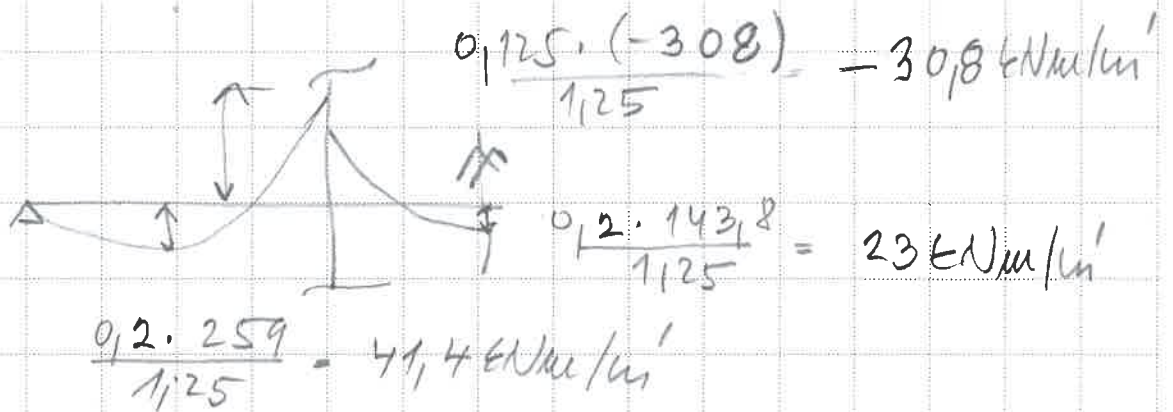 0,125 · (-308) / 1,25 = -30,8 kNm/m'
0,2 · 143,8 / 1,25 = 23 kNm/m'
0,2 · 259 / 1,25 = 41,4 kNm/m'